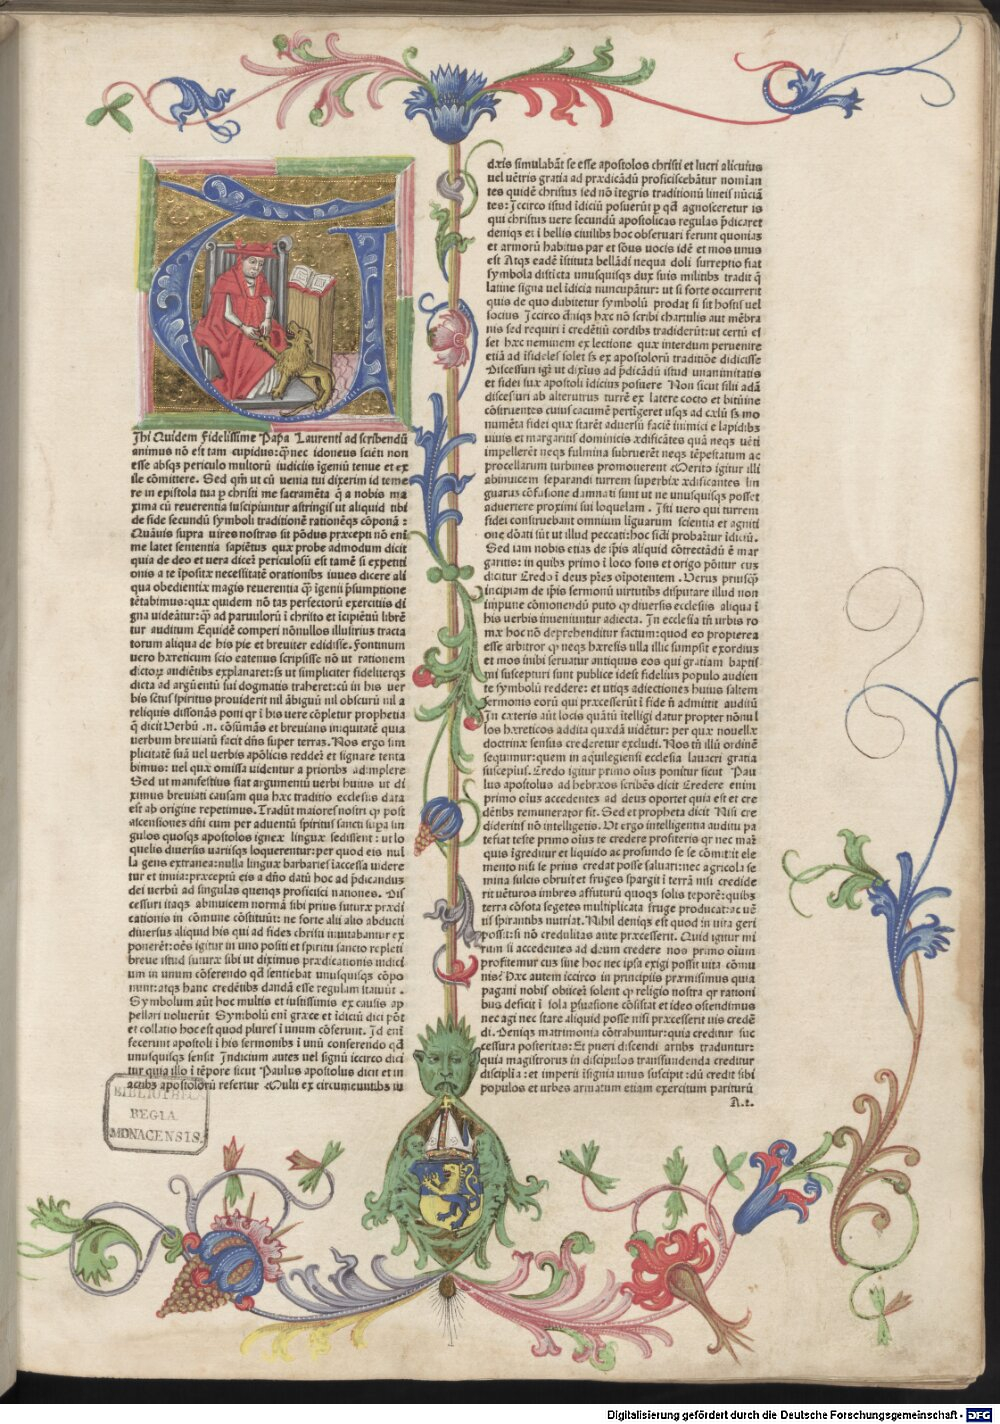 Ihi Quidem fidelissime Papa Laurenti ad scribendū
animus nō est tam cupidus: q̄ nec idoneus sciēti non
esse absq̨ periculo multorū iudiciis īgeniū tenue et ex
ile cōmittere. Sed qm̄ ut cū uenia tui dixerim id teme
re in epistola tua p christi me sacramēta q̄ a nobis ma
xima cū reuerentia suscipiuntur astringis ut aliquid tibi
de fide secundū symboli traditionē rationēq̨ cōponā:
Quāuis supra uires nostras sit pōdus præcepti nō enī
me latet sententia sapiētus quæ probe admodum dicit
quia de deo et uera dicere periculosū est tamē si expetiti
onis a te īpositæ necessitatē orationibs iuues dicere ali
qua obedientiæ magis reuerentia q̄ īgenii p̄sumptione
tētabimus: quæ quidem nō tas perfectorū exercitiis di
gna uideātur: q̄ ad paruulorū ī christo et īcipiētiū librē
tur auditum Equidē comperi nōnullos illustrius tracta
torum aliqua de his pie et breuiter edidisse. Fontinum
uero hæreticum scio eatenus scripsisse nō ut rationem
dictorꝝ audiētibs explanaret: sꝫ ut simpliciter fideliterq̨
dicta ad argūentū sui dogmatis traheret: cū in his uer
bis sctus spiritus prouiderit nil ābiguū nil obscurū nil a
reliquis dissonās poni qr ī his uere cōpletur prophetia
q̄ dicit Verbū .n. cōsūmās et breuians iniquitatē quia
uerbum breuiatū facit dn̄s super terraꝫ. Nos ergo sim
plicitatē suā uel uerbis apōlicis reddere et signare tenta
bimus: uel quæ omissa uidentur a prioribs adimplere
Sed ut manifestius fiat argumentū uerbi huius ut di
ximus breuiati causam qua hæc traditio ecclesiis data
est ab origine repetimus. Tradūt maiores nostri q post
ascensionē dn̄i cum per aduentū spiritus sancti supra sin
gulos quosq̨ apostolos igneæ linguæ sedissent: ut lo
quelis diuersis uariisq̨ loquerentur: per quod eis nul
la gens extranea: nulla linguæ barbaries īaccessa uidere
tur et inuia: præceptū eis a dn̄o datū hoc ad p̄dicandus
dei uerbū ad singulas quenq̨ proficisci nationes. Dis
cessuri itaq̨ abinuicem normā sibi prius futuræ prædi
cationis in cōmune cōstituūt: ne forte alii alio abducti
diuersus aliquid his qui ad fides christi inuitabantur ex
ponerēt: oēs igitur in uno positi et spiritu sancto repleti
breue istud futuræ sibi ut diximus prædicationis indici
um in unum cōferendo qd̄ sentiebat unusquisq̨ cōpo
nunt: atq̨ hanc credētibs dandā esse regulam statuūt.
Symbolum aūt hoc multis et iustissimis ex causis ap
pellari uoluerūt Symbolū enī græce et īdiciū dici pōt
et collatio hoc est quod plures ī unum cōferunt. Id enī
fecerunt apostoli ī his sermonibs ī unū conferendo qd̄
unusquisq̨ sensit Indicium autes uel signū iccirco dici
tur quia illo ī tēpore sicut Paulus apostolus dicit et in
actibs apostolorū refertur Multi ex circumeuntibs iu
dæis simulabāt se esse apostolos christi et lucri alicuius
uel uētris gratia ad prædicādū proficiscebātur nominan
tes quidē christus sed nō ītegris traditionū lineis nūciā
tes: Iccirco istud īdiciū posuerūt p qd̄ agnosceretur is
qui christus uere secundū apostolicas regulas p̄dicaret
deniq̨ et ī bellis ciuilibs hoc obseruari ferunt quonias
et armorū habitus par et sōus uocis idē et mos unus
est Atq̨ eadē īstituta bellādi nequa doli surreptio fiat
symbola disticta unusquisq̨ dux suis militibs tradit q̄
latine signa uel īdicia nuncupātur: ut si forte occurrerit
quis de quo dubitetur symbolū prodat si sit hostis uel
socius Iccirco deniq̨ hæc nō scribi chartulis aut mēbra
nis sed requiri ī credētiū cordibs tradiderūt: ut certū es
set hæc neminem ex lectione quæ interdum peruenire
etiā ad īfideles solet sꝫ ex apostolorū traditiōe didicisse
Discessuri igit ut diximus ad p̄dicādū istud unanimitatis
et fidei suæ apostoli īdicius posuere Non sicut filii adā
discessuri ab alterutrus turrē ex latere cocto et bitūine
cōstruentes cuius cacumē pertigeret usq̨ ad cælū sꝫ mo
numēta fidei quæ starēt aduersū faciē inimici e lapidibs
uiuis et margaritis dominicis ædificātes quā neq̨ uēti
impellerēt neq̨ fulmina subruerēt neq̨ tēpestatum ac
procellarum turbines promouerent Merito igitur illi
abinuicem separandi turrem superbiæ ædificantes lin
guarus cōfusione damnati sunt ut ne unusquisq̨ posset
aduertere proximi sui loquelam. Isti uero qui turrem
fidei construebant omnium līguarum scientia et agniti
one dōati sūt ut illud peccati: hoc fidei probaretur īdiciū.
Sed iam nobis etias de ip̄is aliquid cōtrectādū ē mar
garitis: in quibs primo ī loco fons et origo pōitur cus
dicitur Credo ī deus pr̄es oīpotentem. Verus priusq̄
incipiam de ip̄is sermonū uirtutibs disputare illud non
impune cōmonendū puto q̨ diuersis ecclesiis aliqua ī
his uerbis inueniuntur adiecta. In ecclesia tn̄ urbis ro
mæ hoc nō deprehenditur factum: quod eo propterea
esse arbitror q̨ neq̨ hæresis ulla illic sumpsit exordius
et mos inibi seruatur antiquus eos qui gratiam baptis
mi suscepturi sunt publice idest fidelius populo audien
te symbolū reddere: et utiq̨ adiectiones huius saltem
sermonis eorū qui præcesserūt ī fide n̄ admittit auditū
In exteris aūt locis quātū ītelligi datur propter nōnul
los hæreticos addita quædā uidētur: per quæ nouellæ
doctrinæ sensus crederetur excludi. Nos tn̄ illū ordinē
sequimur: quem in aquilegiensi ecclesia lauacri gratia
suscepius. Credo igitur primo oius ponitur sicut Pau
lus apostolus ad hebræos scribēs dicit Credere enim
primo oius accedentes ad deus oportet quia est et cre
dētibs remunerator fit. Sed et propheta dicit Nisi cre
dideritis nō intelligetis. Ut ergo intelligentia auditu pa
tefiat teste primo oius te credere profiteris qr nec mare
quis īgreditur et liquido ac profundo se se cōmittit ele
mento nisi se prius credat posse saluari: nec agricola se
mina sulcis obruit et fruges spargit ī terrā nisi credide
rit uēturos imbres affuturū quoq̨ solis teporē: quibs
terra cōfota segetes multiplicata fruge producat: ac uē
tis spirantibs nutriat. Nihil deniq̨ est quod in uita geri
possit: si nō credulitas ante præcesserit. Quid igitur mi
rum si accedentes ad deum credere nos primo oium
profitemur cus sine hoc nec ipsa exigi possit uita cōmu
nis? Hæc autem iccirco in principiis præmisimus quia
pagani nobis obiicere solent q̨ religio nostra qr rationi
bus deficit ī sola psuasione cōsistat et ideo ostendimus
nec agi nec stare aliquid posse nisi præcesserit uis credē
di. Deniq̨ matrimonia cōtrahuntur: quia creditur suc
cessura posteritas: Et pueri discendi artibs traduntur:
quia magistrorus in discipulos transfundenda creditur
disciplīa: et imperii īsignia unus suscipit: dū credit sibi
populos et urbes armatum etiam exercitum parituru
A.2.
BIBLIOTHECA
REGIA
MONACENSIS.
Digitalisierung gefördert durch die Deutsche Forschungsgemeinschaft - DFG